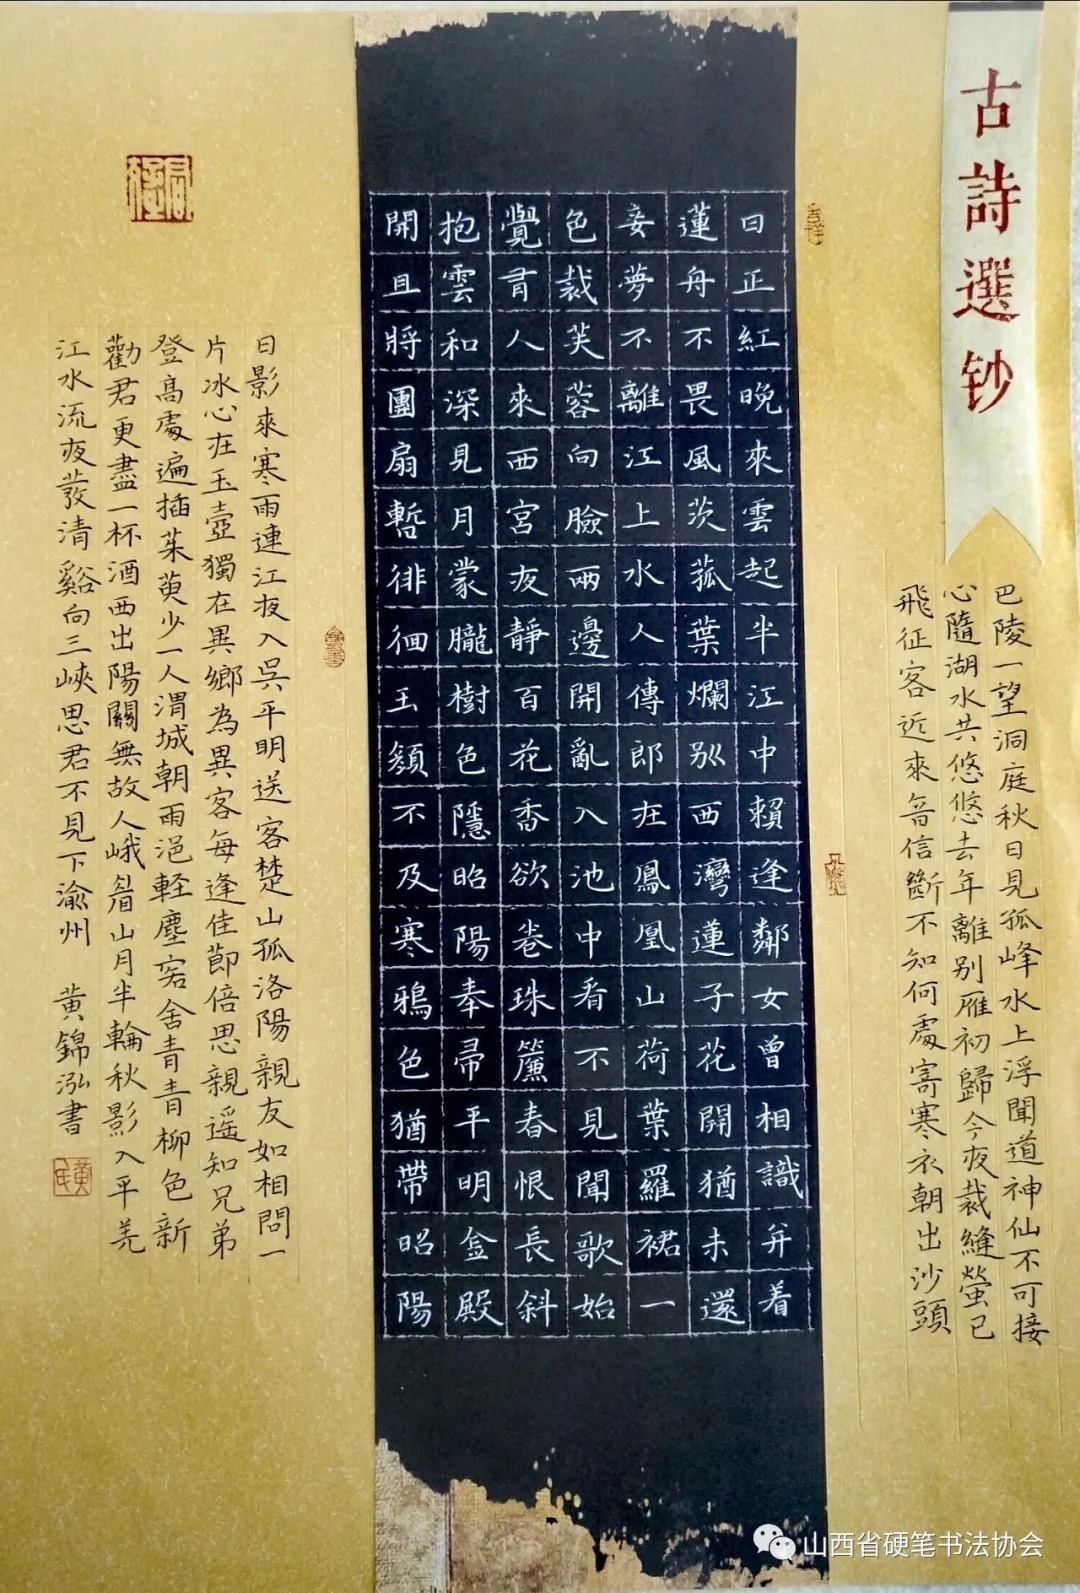 古詩選钞
巴陵一望洞庭秋日見孤峰水上浮聞道神仙不可接
心隨湖水共悠悠去年離别雁初歸今夜裁縫螢已
飛征客近來音信斷不知何處寄寒衣朝出沙頭
日正紅晚來雲起半江中賴逢鄰女曾相識并着
蓮舟不畏風茨菰葉爛别西灣蓮子花開猶未還
妾夢不離江上水人傳郎在鳳凰山荷葉羅裙一
色裁芙蓉向臉兩邊開亂入池中看不見聞歌始
覺有人來西宮夜靜百花香欲卷珠簾春恨長斜
抱雲和深見月蒙朧樹色隱昭陽奉帚平明金殿
開且將團扇暫徘徊玉顏不及寒鴉色猶帶昭陽
日影來寒雨連江夜入吳平明送客楚山孤洛陽親友如相問一
片冰心在玉壺獨在異鄉為異客每逢佳節倍思親遥知兄弟
登高處遍插茱萸少一人渭城朝雨浥軽塵客舍青青柳色新
勸君更盡一杯酒西出陽關無故人峨眉山月半輪秋影入平羌
江水流夜發清谿向三峽思君不見下渝州 黄錦泓書
山西省硬笔书法协会